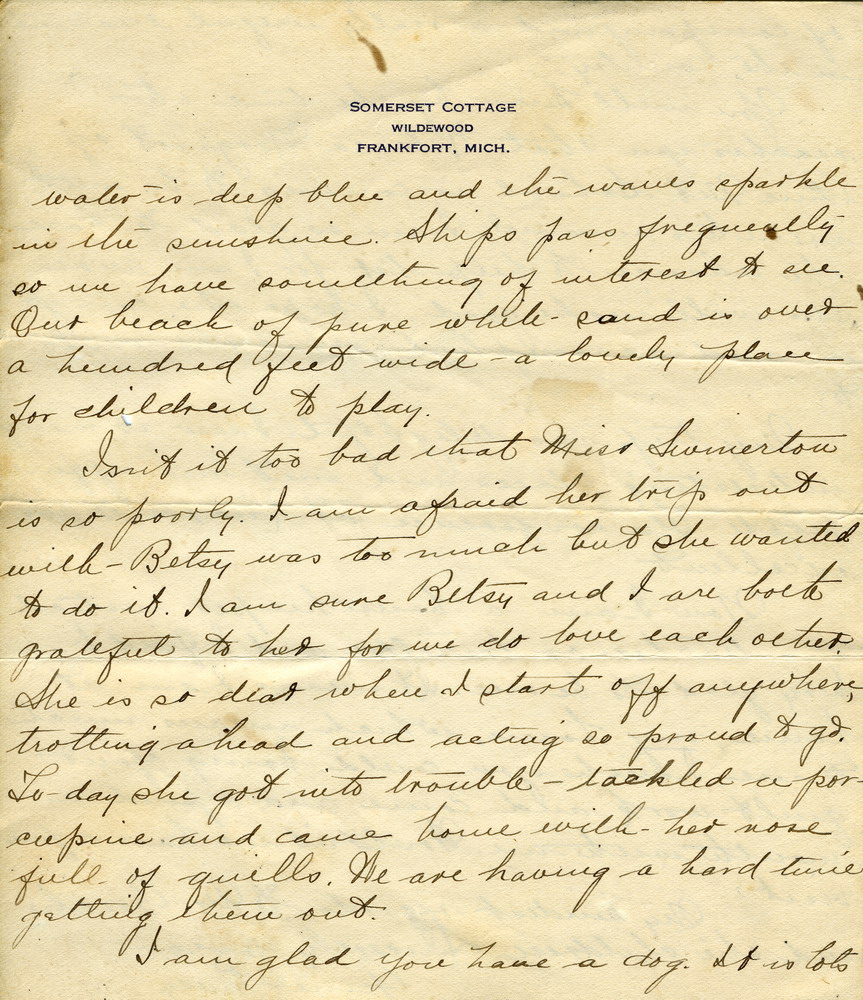 SOMERSET COTTAGE
WILDEWOOD
FRANKFORT, MICH.
water is deep blue and the waves sparkle
in the sunshine. Ships pass frequently
so we have something of interest to see.
Our beach of pure white sand is over
a hundred feet wide - a lovely place
for children to play.
Isn't it too bad that Miss Swinerton
is so poorly. I am afraid her trip out
with Betsy was too much but she wanted
to do it. I am sure Betsy and I are both
grateful to her for we do love each other.
She is so dear when I start off anywhere,
trotting ahead and acting so proud to go.
To-day she got into trouble - tackled a por-
cupine and came home with her nose
full of quills. We are having a hard time
getting them out.
I am glad you have a dog. It is lots